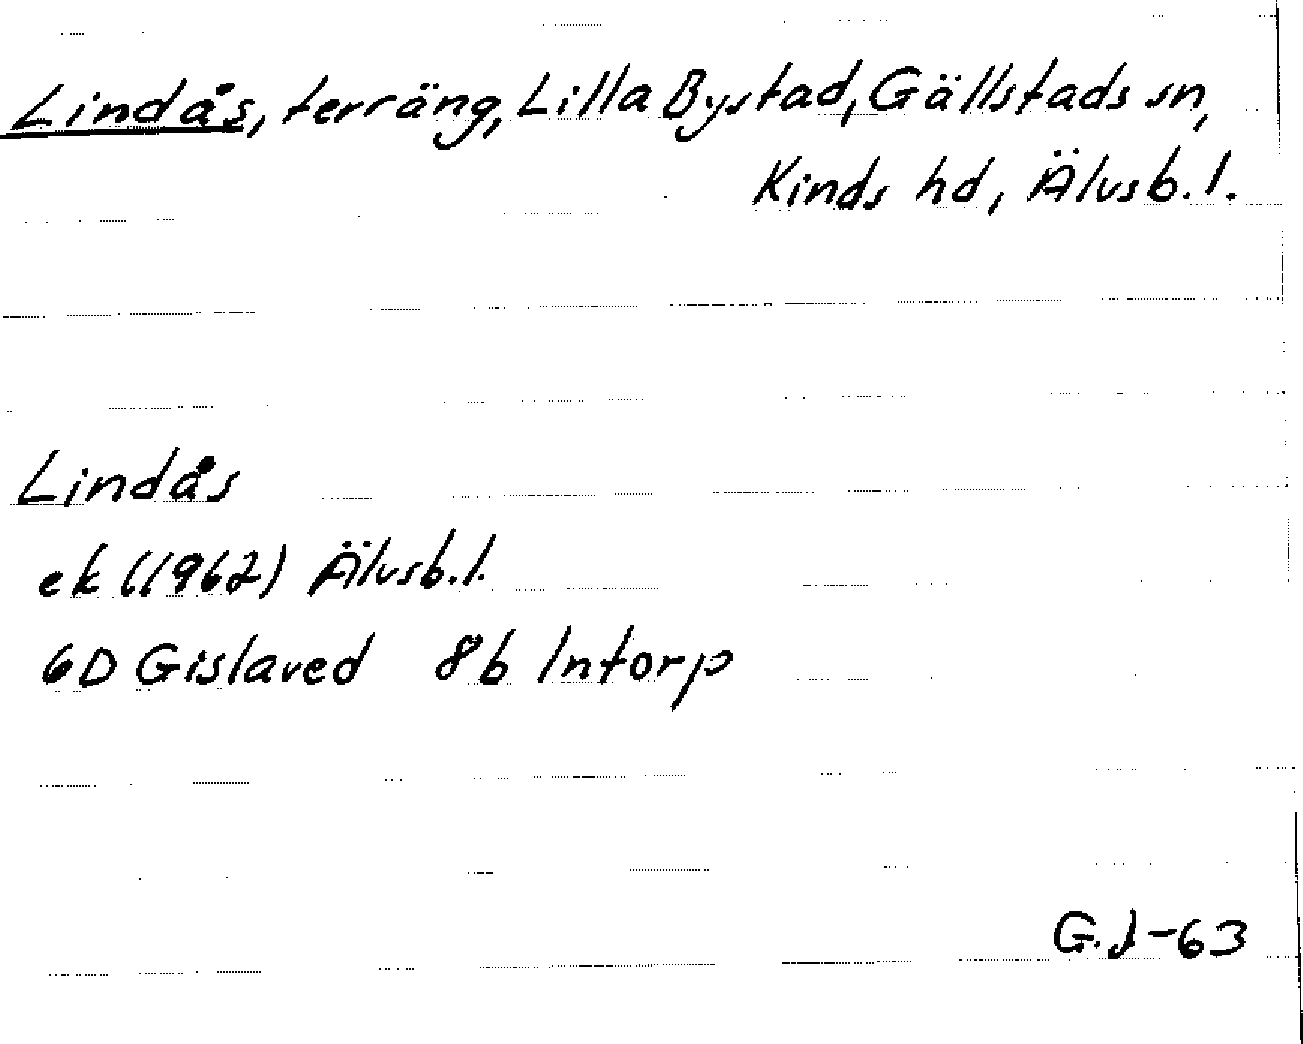 Lindås, terräng, Lilla Bystad, Gällstads sn,
Kinds hd, Älvsb. l.
Lindås
ek (1962) Älvsb. l.
6D Gislaved 8b Intorp
G.J-63